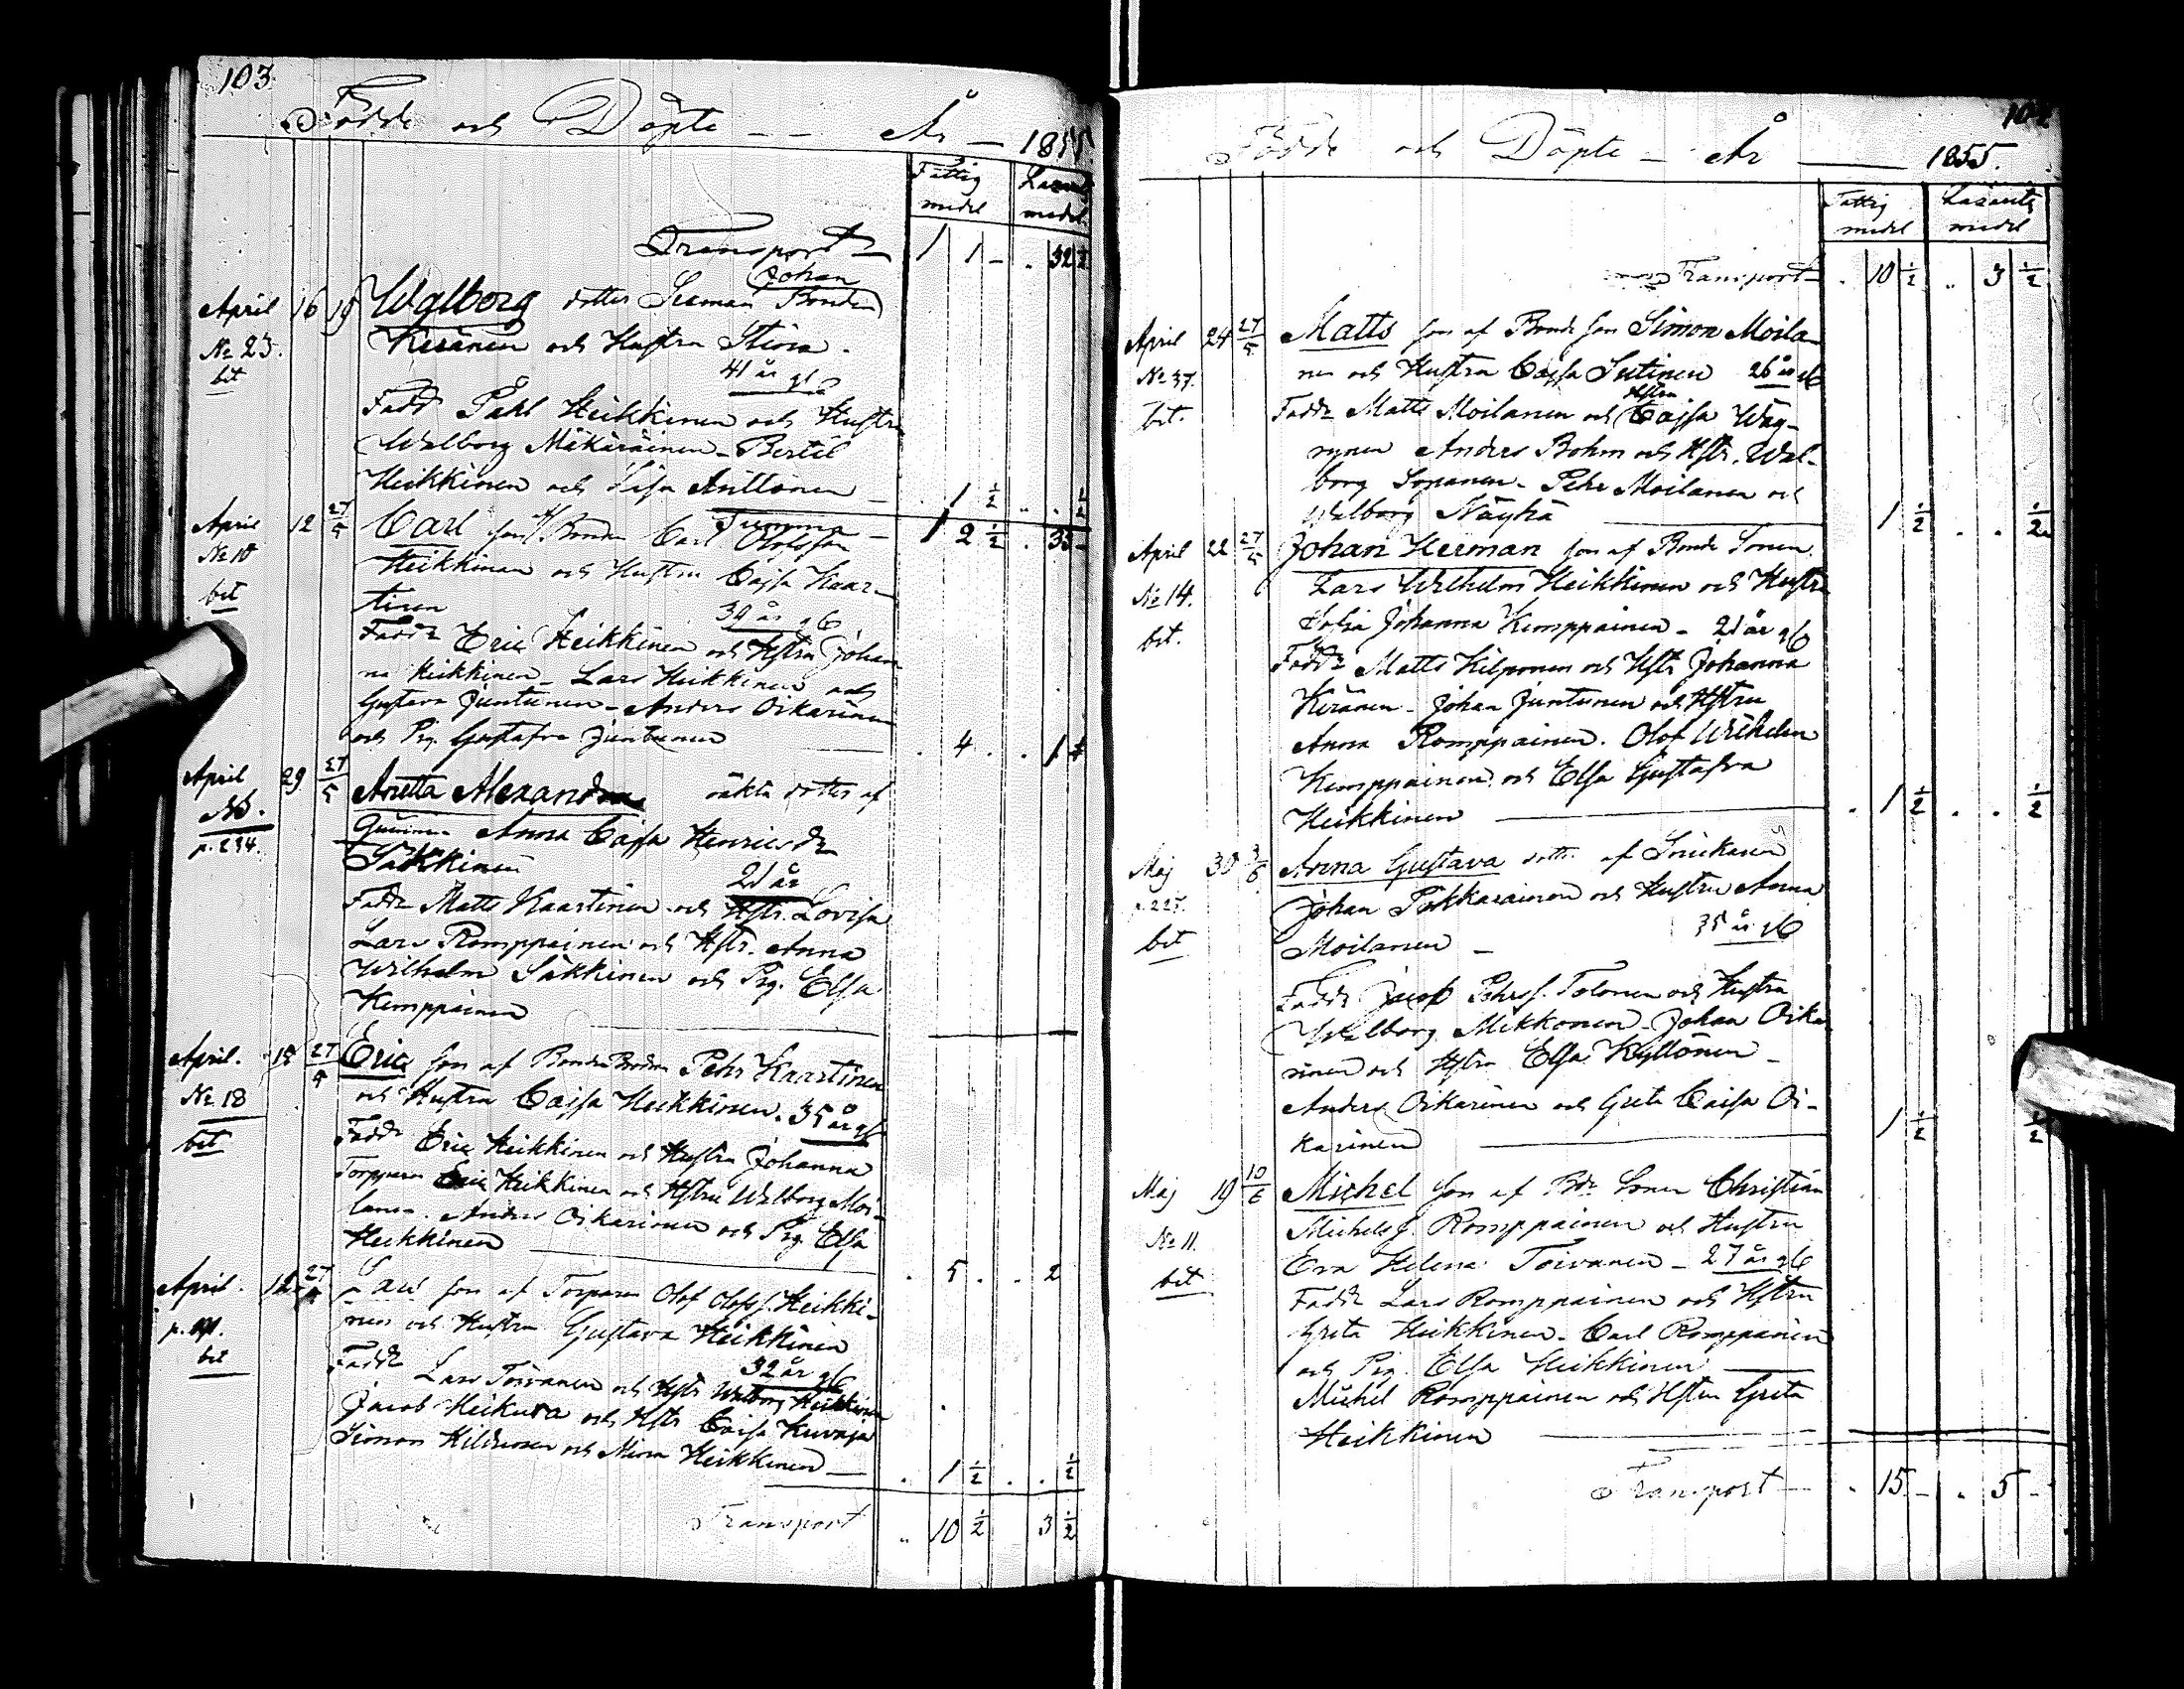 103
Födde och Döpte - - År - 1855.
Fattig medel
Lazarets medel
Transport 1 1 - . 32 1/2
Johan
April 16 19 Walborg dotter Bonden
No 23. Keränen och Hustru Stina.
bet 41 år gl
Fadd Pahl Heikkinen och Hustru
Walborg Mäkäräinen - Bertil
Heikkinen och Lisa Anttonen - . 1 1/2 . . 1/2
Summa 1 2 1/2 . 33 -
April 12 27/5 Carl son af Bonden Carl Olofsson
No 10 Heikkinen och Hustru Cajsa Kaar-
bet tinen 39 år gl
Faddr Eric Heikkinen och Hstru Johan
na Heikkinen - Lars Heikkinen och
Gustava Juntunen - Anders Oikarinen
och Pig. Gustafva Juntunen . 4 . . 1
April 29 27/5 Anetta Alexandra oäkta dotter af
Nb. Qvinnan Anna Cajsa Henricsdr
p. 294. Säkkinen 21 år
Faddr Matts Kaartinen och Hstr. Lovisa
Lars Romppainen och Hstr. Anna
Wilhelm Säkkinen och Pig. Elsa
Kemppainen
April. 15 27/5 Eric son af Bonde Pehr Kaartinen
No 18 och Hustru Cajsa Heikkinen. 35 år gl
bet Faddr Eric Heikkinen och Hustru Johanna
Torpparen Eric Heikkinen och Hstru Walborg Moi-
lanen. Anders Oikarinen och Pig. Elsa
Heikkinen . 5 . . 2
April. 12 27/5 Lars son af Torparen Olof Olofss. Heikki-
nen och Hustru Gustava Heikkinen
bet 32 år gl
Faddr Lars Toivanen och Hstr Walborg Heikkinen
Jacob Heikura och Hstr Caisa Kuvaja
Simon Hiltunen och Mina Heikkinen - . 1 1/2 . . 1/2
Transport .. 10 1/2 3 1/2
104
Födde och Döpte - År 1855.
Fattig medel
Lazarets medel
Transport . 10 1/2 .. 3 1/2
April 24 27/5 Matts son af Bonde son Simon Moila-
No 37. nen och Hustru Cajsa Sutinen 26 år gl
bet. Faddr Matts Moilanen och Hstru Cajsa Wäy-
rynen Anders Bohm och Hstr. Wal-
borg Sopanen - Pehr Moilanen och
Walborg Näykä 1 1/2 . . 1/2
April 22 27/5 Johan Herman son af Bonde Sonen
No 14. Lars Wilhelm Heikkinen och Hustru
bet. Sofia Johanna Kemppainen - 21 år gl
Faddr Matts Kilponen och Hstr Johanna
Keränen - Johan Juntunen och Hstru
Anna Romppainen. Olof Wilhelm
Kemppainen och Elsa Gustafva
Heikkinen . 1 1/2 . . 1/2
Maj 30 3/6 Anna Gustava dottr af Snickaren
p. 225. Johan Pikkarainen och Hustru Anna
bet Moilanen - 35 år gl
Faddr Jacob Pehrss. Tolonen och Hustru
Walborg Mikkonen - Johan Oika
rinen och Hstru Elsa Kyllönen -
Anders Oikarinen och Greta Caisa Oi-
karinen 1 1/2 1/2
Maj 19 10/6 Michel son af Bde Sonen Christian
No 11. Michelss. Romppainen och Hustru
bet Eva Helena Toivanen - 27 år gl
Faddr Lars Romppainen och Hstru
Greta Heikkinen - Carl Romppainen
och Pig. Elsa Heikkinen
Michel Romppainen och Hstru Greta
Heikkinen
Transport - . 15 - . 5 -